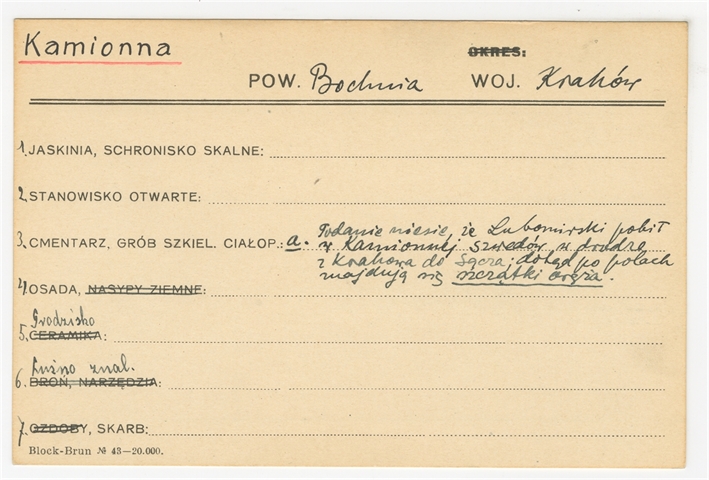 Kamionna
OKRES:
POW. Bochnia WOJ. Kraków
1. JASKINIA, SCHRONISKO SKALNE:
2. STANOWISKO OTWARTE:
3. CMENTARZ, GRÓB SZKIEL. CIAŁOP.: a. Podanie niesie, że Lubomirski pobił
w Kamionnej szwedów, w drodze
z Krakowa do Sącza; dotąd po polach
znajdują się szczątki oręża.
4. OSADA, NASYPY ZIEMNE:
Grodzisko
5. CERAMIKA:
Luźno znal.
6. BROŃ, NARZĘDZIA:
7. OZDOBY, SKARB:
Block-Brun № 43—20.000.